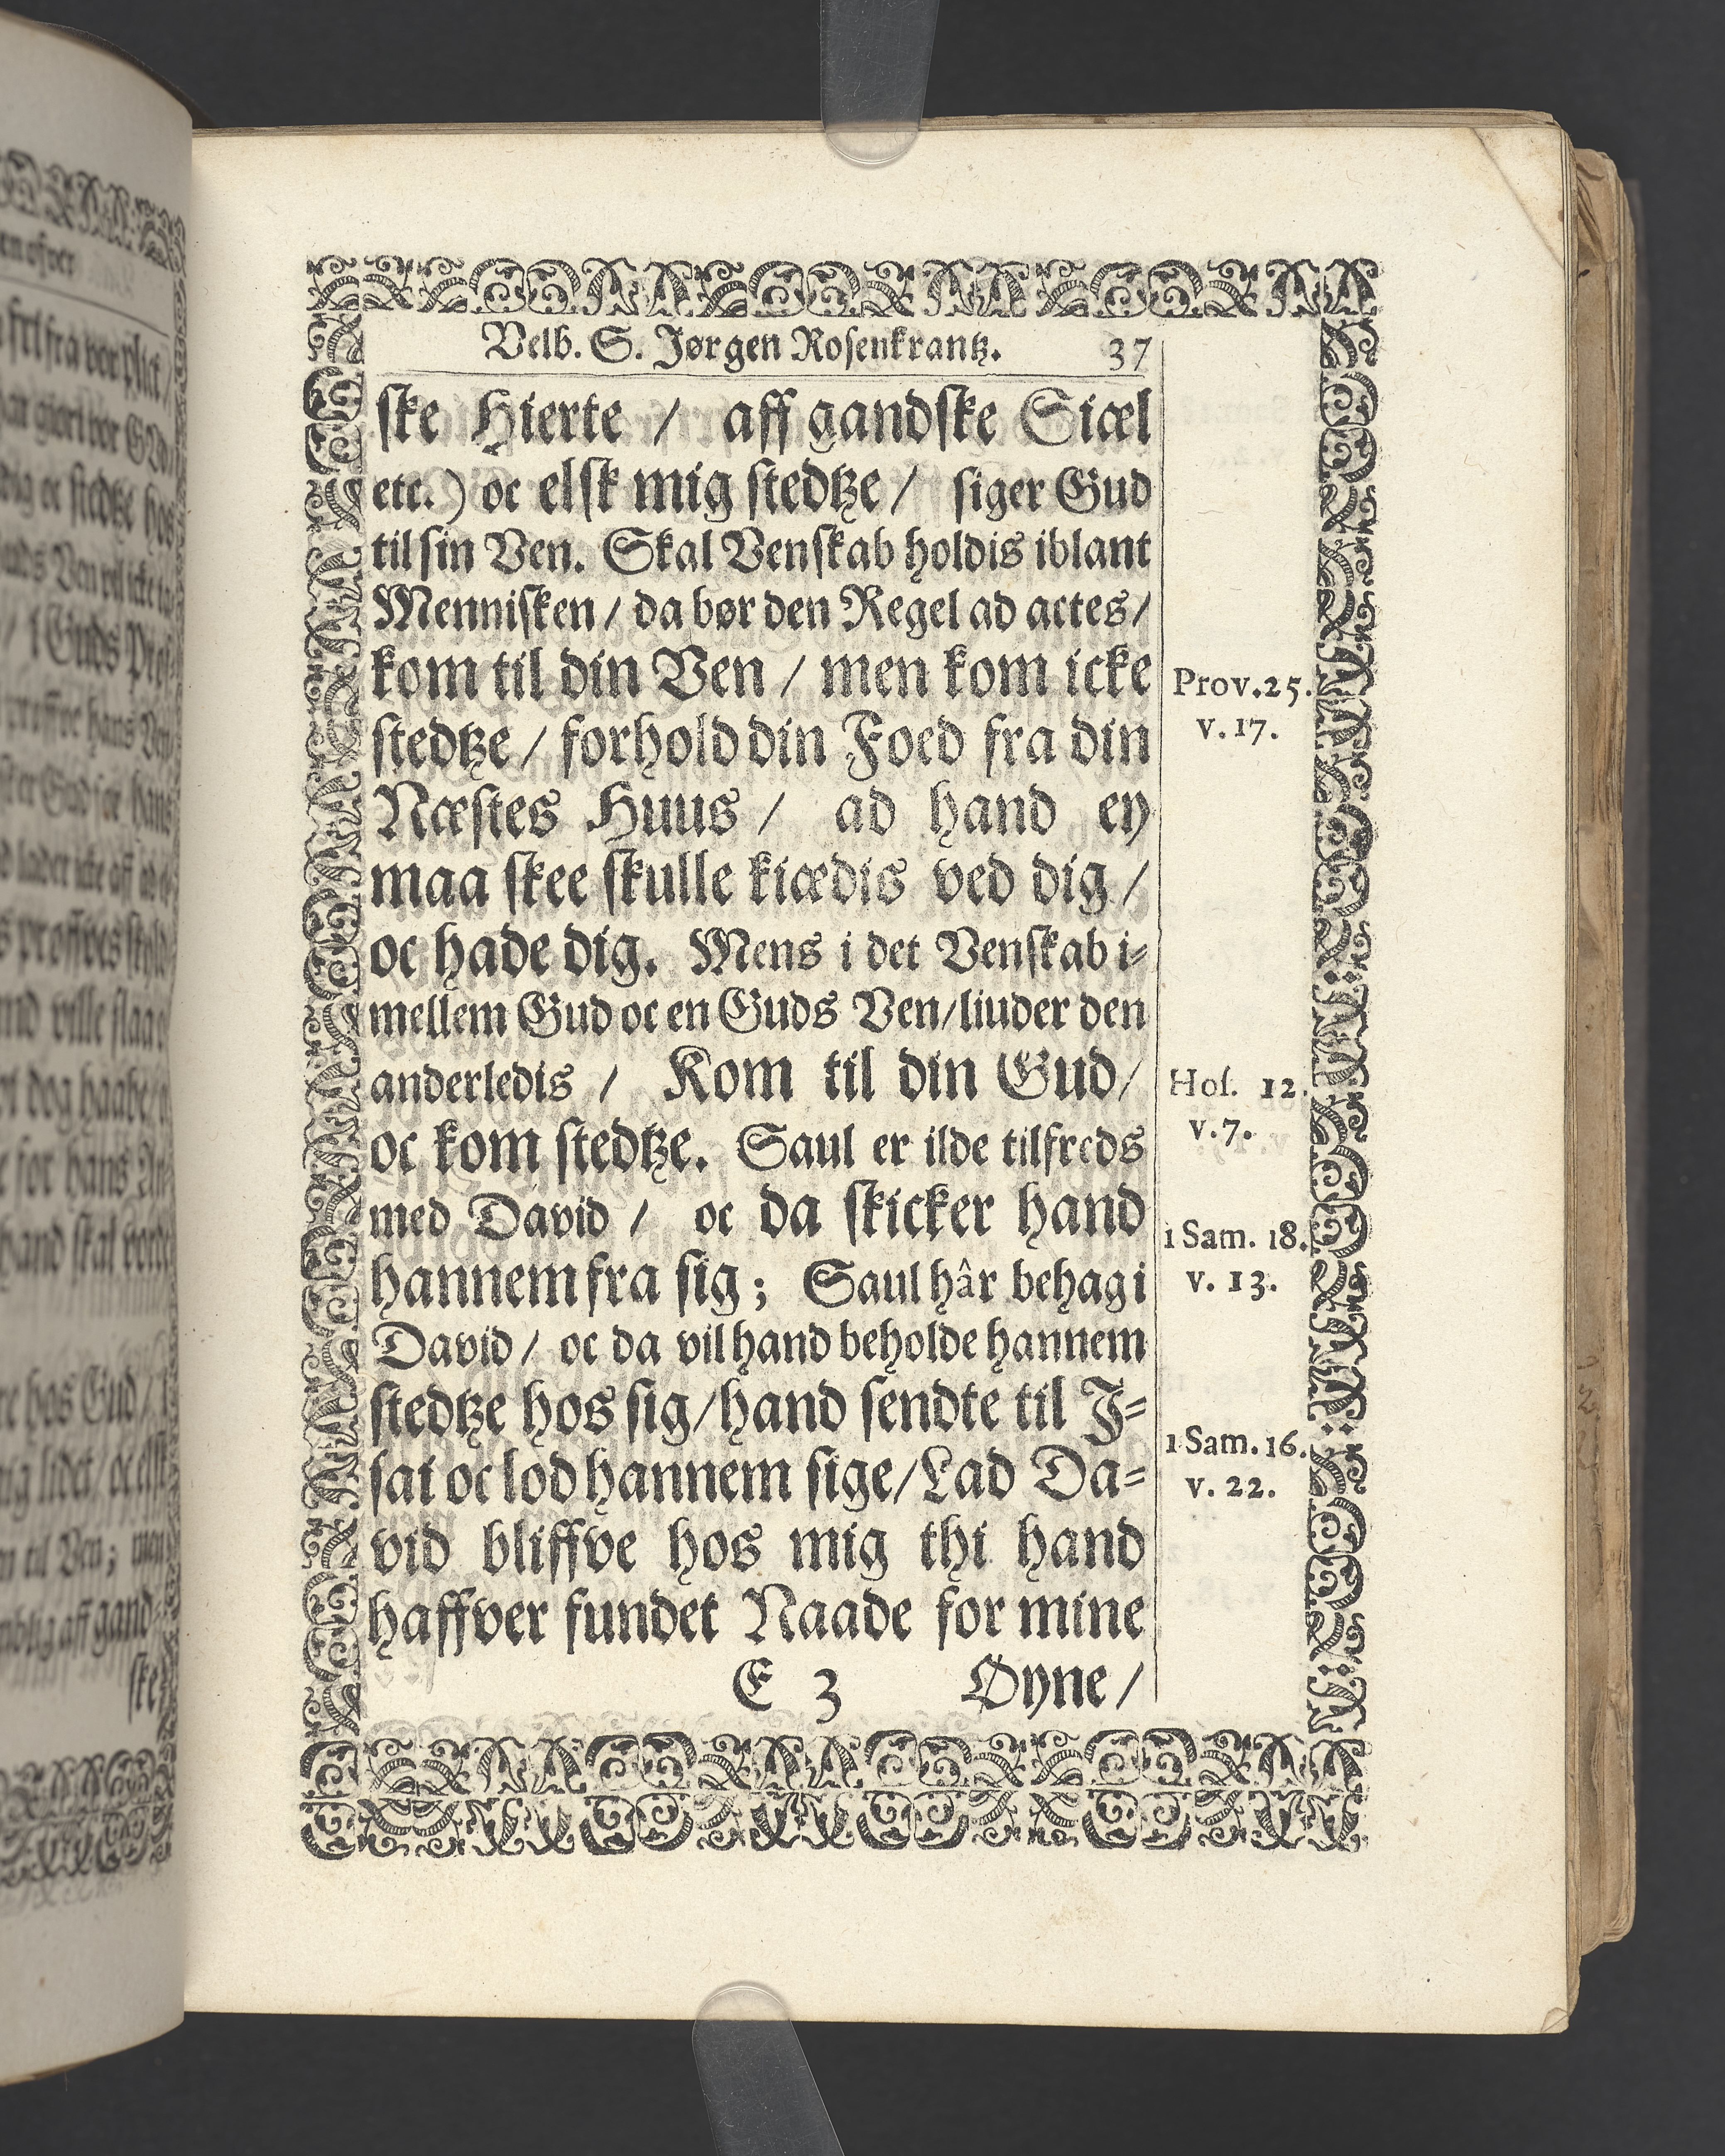 Velb. S. Jørgen Rosenkrantz. 37
ske Hierte / aff gandske Siæl
etc.) oc elsk mig stedtze / siger Gud
til sin Ven. Skal Venskab holdis iblant
Mennisken / da bør den Regel ad actes /
kom til din Ven / men kom icke
stedtze / forhold din Foed fra din
Næstes Huus / ad hand ey
maa skee skulle kiædis ved dig /
oc hade dig. Mens i det Venskab i-
mellem Gud oc en Guds Ven / liuder den
anderledis / Kom til din Gud /
oc kom stedtze. Saul er ilde tilfreds
med David / oc da skicker hand
hannem fra sig ; Saul hâr behag i
David / oc da vil hand beholde hannem
stedtze hos sig / hand sendte til J-
sai oc lod hannem sige / Lad Da-
vid bliffve hos mig thi hand
haffver fundet Naade for mine
E 3 Øyne /
Prov. 25.
v. 17.
Hos. 12.
v. 7.
1 Sam. 18.
v. 13.
1 Sam. 16.
v. 22.